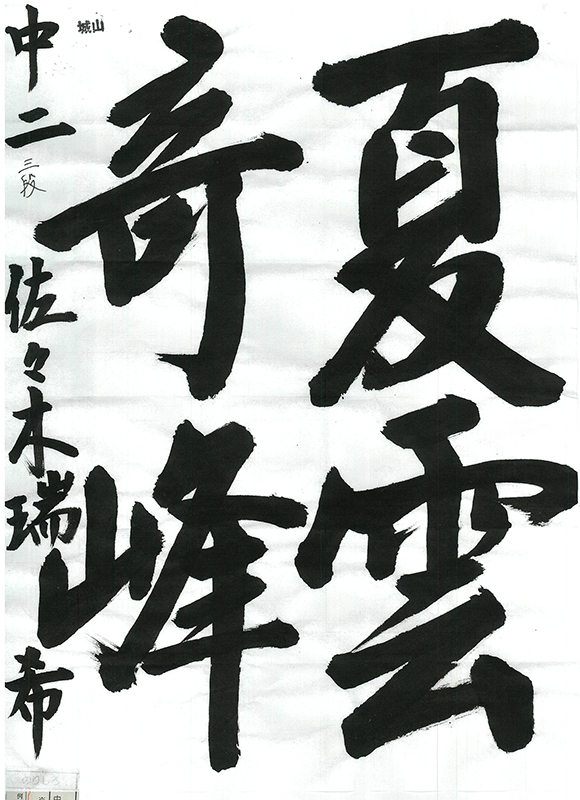 夏雲
奇峰
中二 三段 佐々木瑞希
城山